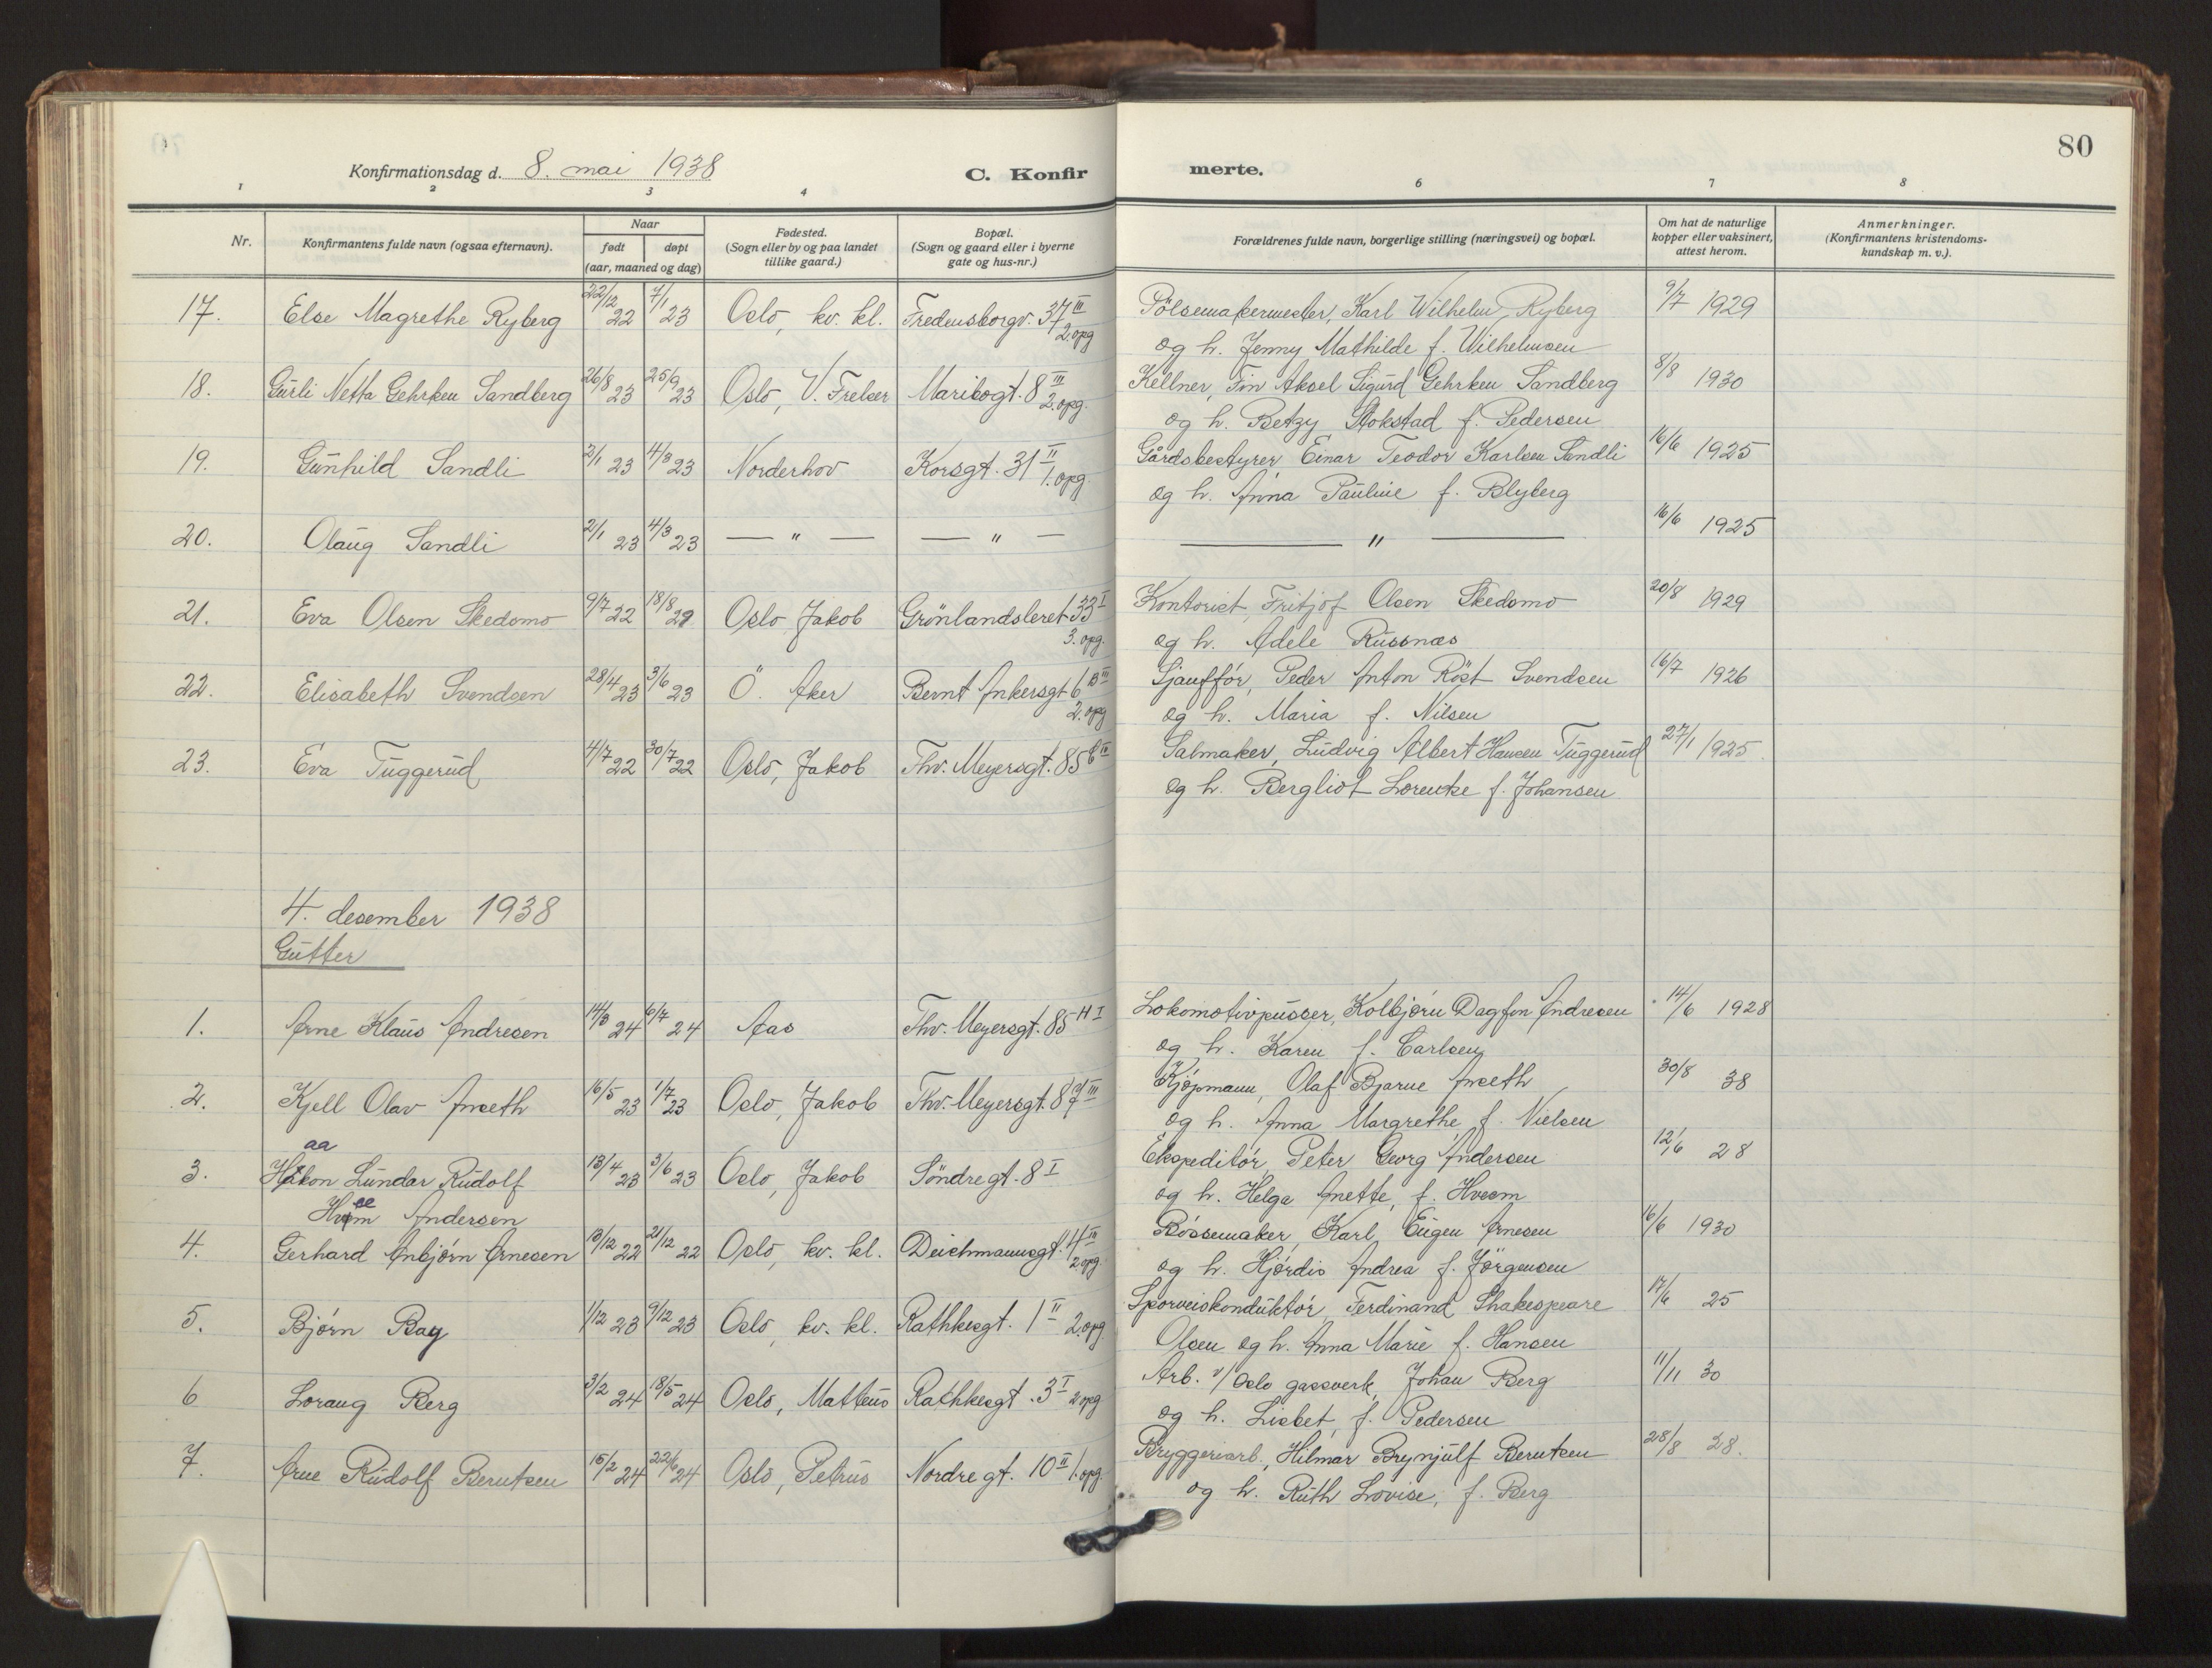 80
Konfirmationsdag d. 8. mai 1938
C. Konfirmerte.
1 2 3 4 6 7 8
Nr.
Konfirmantens fulde navn (ogsaa efternavn).
Naar
født døpt
(aar, maaned og dag)
Fødested.
(Sogn eller by og paa landet
tillike gaard.)
Bopæl.
(Sogn og gaard eller i byerne
gate og hus-nr.)
Forældrenes fulde navn, borgerlige stilling (næringsvei) og bopæl.
Om hat de naturlige
kopper eller vaksinert,
attest herom.
Anmerkninger.
(Konfirmantens kristendoms-
kundskap m. v.).
17. Else Magrethe Ryberg 22/12 22 7/1 23 Oslo, kv. kl. Fredensborgv. 37 III 2.opg Pölsemakermester, Karl Wilhelm Ryberg 9/7 1929
og h. Jenny Mathilde f. Wilhelmsen
18. Gurli Netta Gehrken Sandberg 26/8 23 25/9 23 Oslo, V. Frelser Maribogt. 8 III 2.opg. Kellner, Fin Aksel Sigurd Gehrken Sandberg 8/8 1930
og h. Betzy Stokstad f. Pedersen
19. Gunhild Sandli 2/1 23 4/3 23 Norderhov Korsgt. 31 II 1.opg. Gårdsbestyrer Einar Teodor Karlsen Sandli 16/6 1925
og h. Anna Pauline f. Blyberg
20. Olaug Sandli 2/1 23 4/3 23 — " — — " — — " — 16/6 1925
21. Eva Olsen Skedsmo 9/7 22 18/8 29 Oslo Jakob Grönlandsleret 33 I 3.opg. Kontorist, Fritjof Olsen Skedsmo 20/8 1929
og h. Adele Russnæs
22. Elisabeth Svendsen 28/4 23 3/6 23 Ö. Aker Bernt Ankersgt 6 B III 2.opg Sjauffór, Peder Anton Röst Svendsen 16/7 1926
og h. Maria f. Nilsen
23. Eva Tuggerud 4/7 22 30/7 22 Oslo, Jakob Thv. Meyersgt. 85 Salmaker, Ludvig Albert Hansen Tuggerud 27/1 1925
og h. Bergliot Lorentze f. Johansen
4. desember 1938
Gutter
1. Arne Klaus Andresen 14/3 24 6/7 24 Aas Thv. Meyersgt. 85 H I Lokomotivpusser, Kolbjørn Dagfin Andresen 14/6 1928
og h. Karen f. Carlsen
2. Kjell Olav Anseth 16/5 23 1/7 23 Oslo, Jakob Thv. Meyersgt. 87 III Kjøpmann, Olaf Bjarne Anseth 30/8 38
og h. Anna Margrethe f. Nielsen
aa
3. Håkon Lundar Rudolf 13/4 23 3/6 23 Oslo, Jakob Söndregt. 8 I Ekspeditór, Peter Georg Andersen 12/6 28
æ
Hvem Andersen og h. Helga Anette, f. Hveem
4. Gerhard Anbjørn Arnesen 13/12 22 21/12 22 Oslo, kv. kl. Deichmannsgt. 4 III 2.opg. Bössemaker, Karl Eugen Arnesen 16/6 1930
og h. Hjørdis Andrea f. Jörgensen
5. Bjørn Bay 1/12 23 9/12 23 Oslo, kv. kl. Rathkesgt. 1 II 2.opg Sporveiskonduktór, Ferdinand Shakespeare 17/6 25
Olsen og h. Anna Marie f. Hansen
6 Loraug Berg 3/2 24 18/5 24 Oslo, Matteus Rathkesgt. 3 I 2 opg Arb. v/ Oslo gassverk, Johan Berg 11/11 30
og h. Lisbet, f. Pedersen
7. Arne Rudolf Berntsen 15/2 24 22/6 24 Oslo, Petrus Nordre gt. 10 II 1.opg. Bryggeriarb., Hilmar Brynjulf Berntsen 28/8 28.
og h. Ruth Lovise, f. Berg